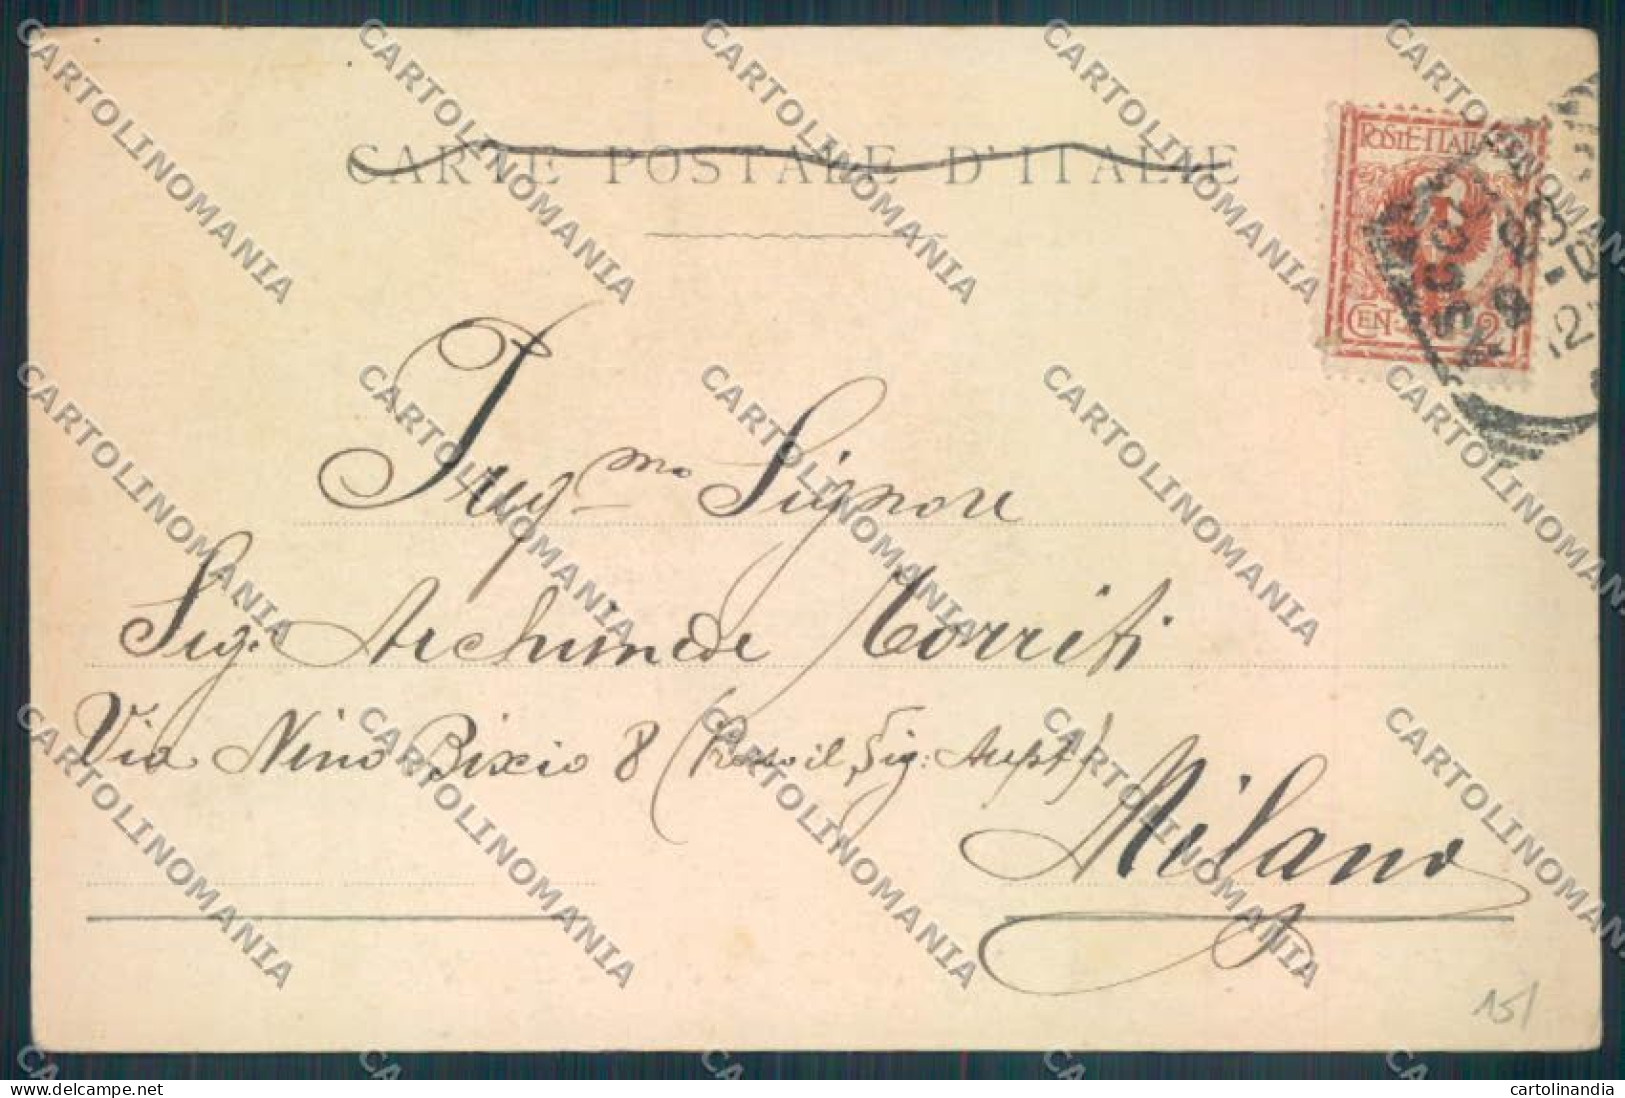 CARTE POSTALE D'ITALIE
POSTE ITALIANE
CEN. 2
Preg.mo Signore
Sig. Archimede Morriti
Via Nino Bixio 8 (Presso il Sig:
Milano
15/
CARTOLINOMANIA
cartolinandia
delcampe.net